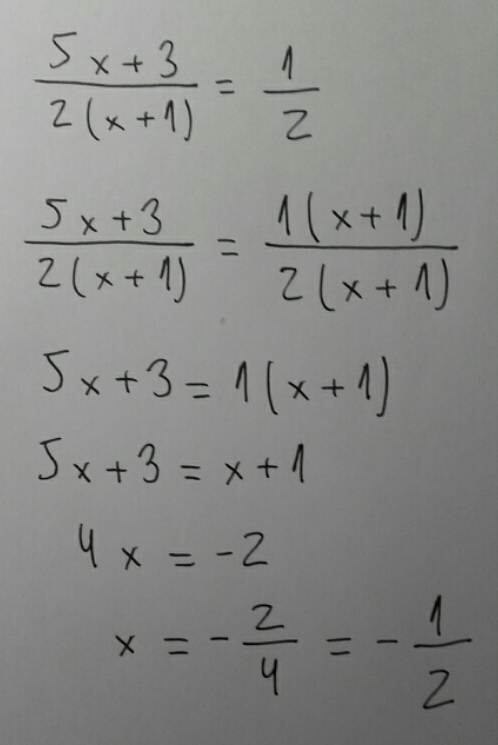 5x+3/2(x+1) = 1/2
5x+3/2(x+1) = 1(x+1)/2(x+1)
5x+3 = 1(x+1)
5x+3 = x+1
4x = -2
x = -2/4 = -1/2